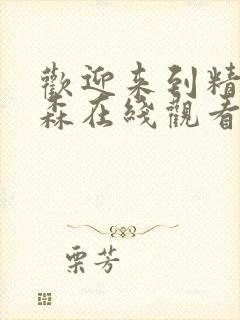 歡迎来到精
森在綫觀看
栗芳